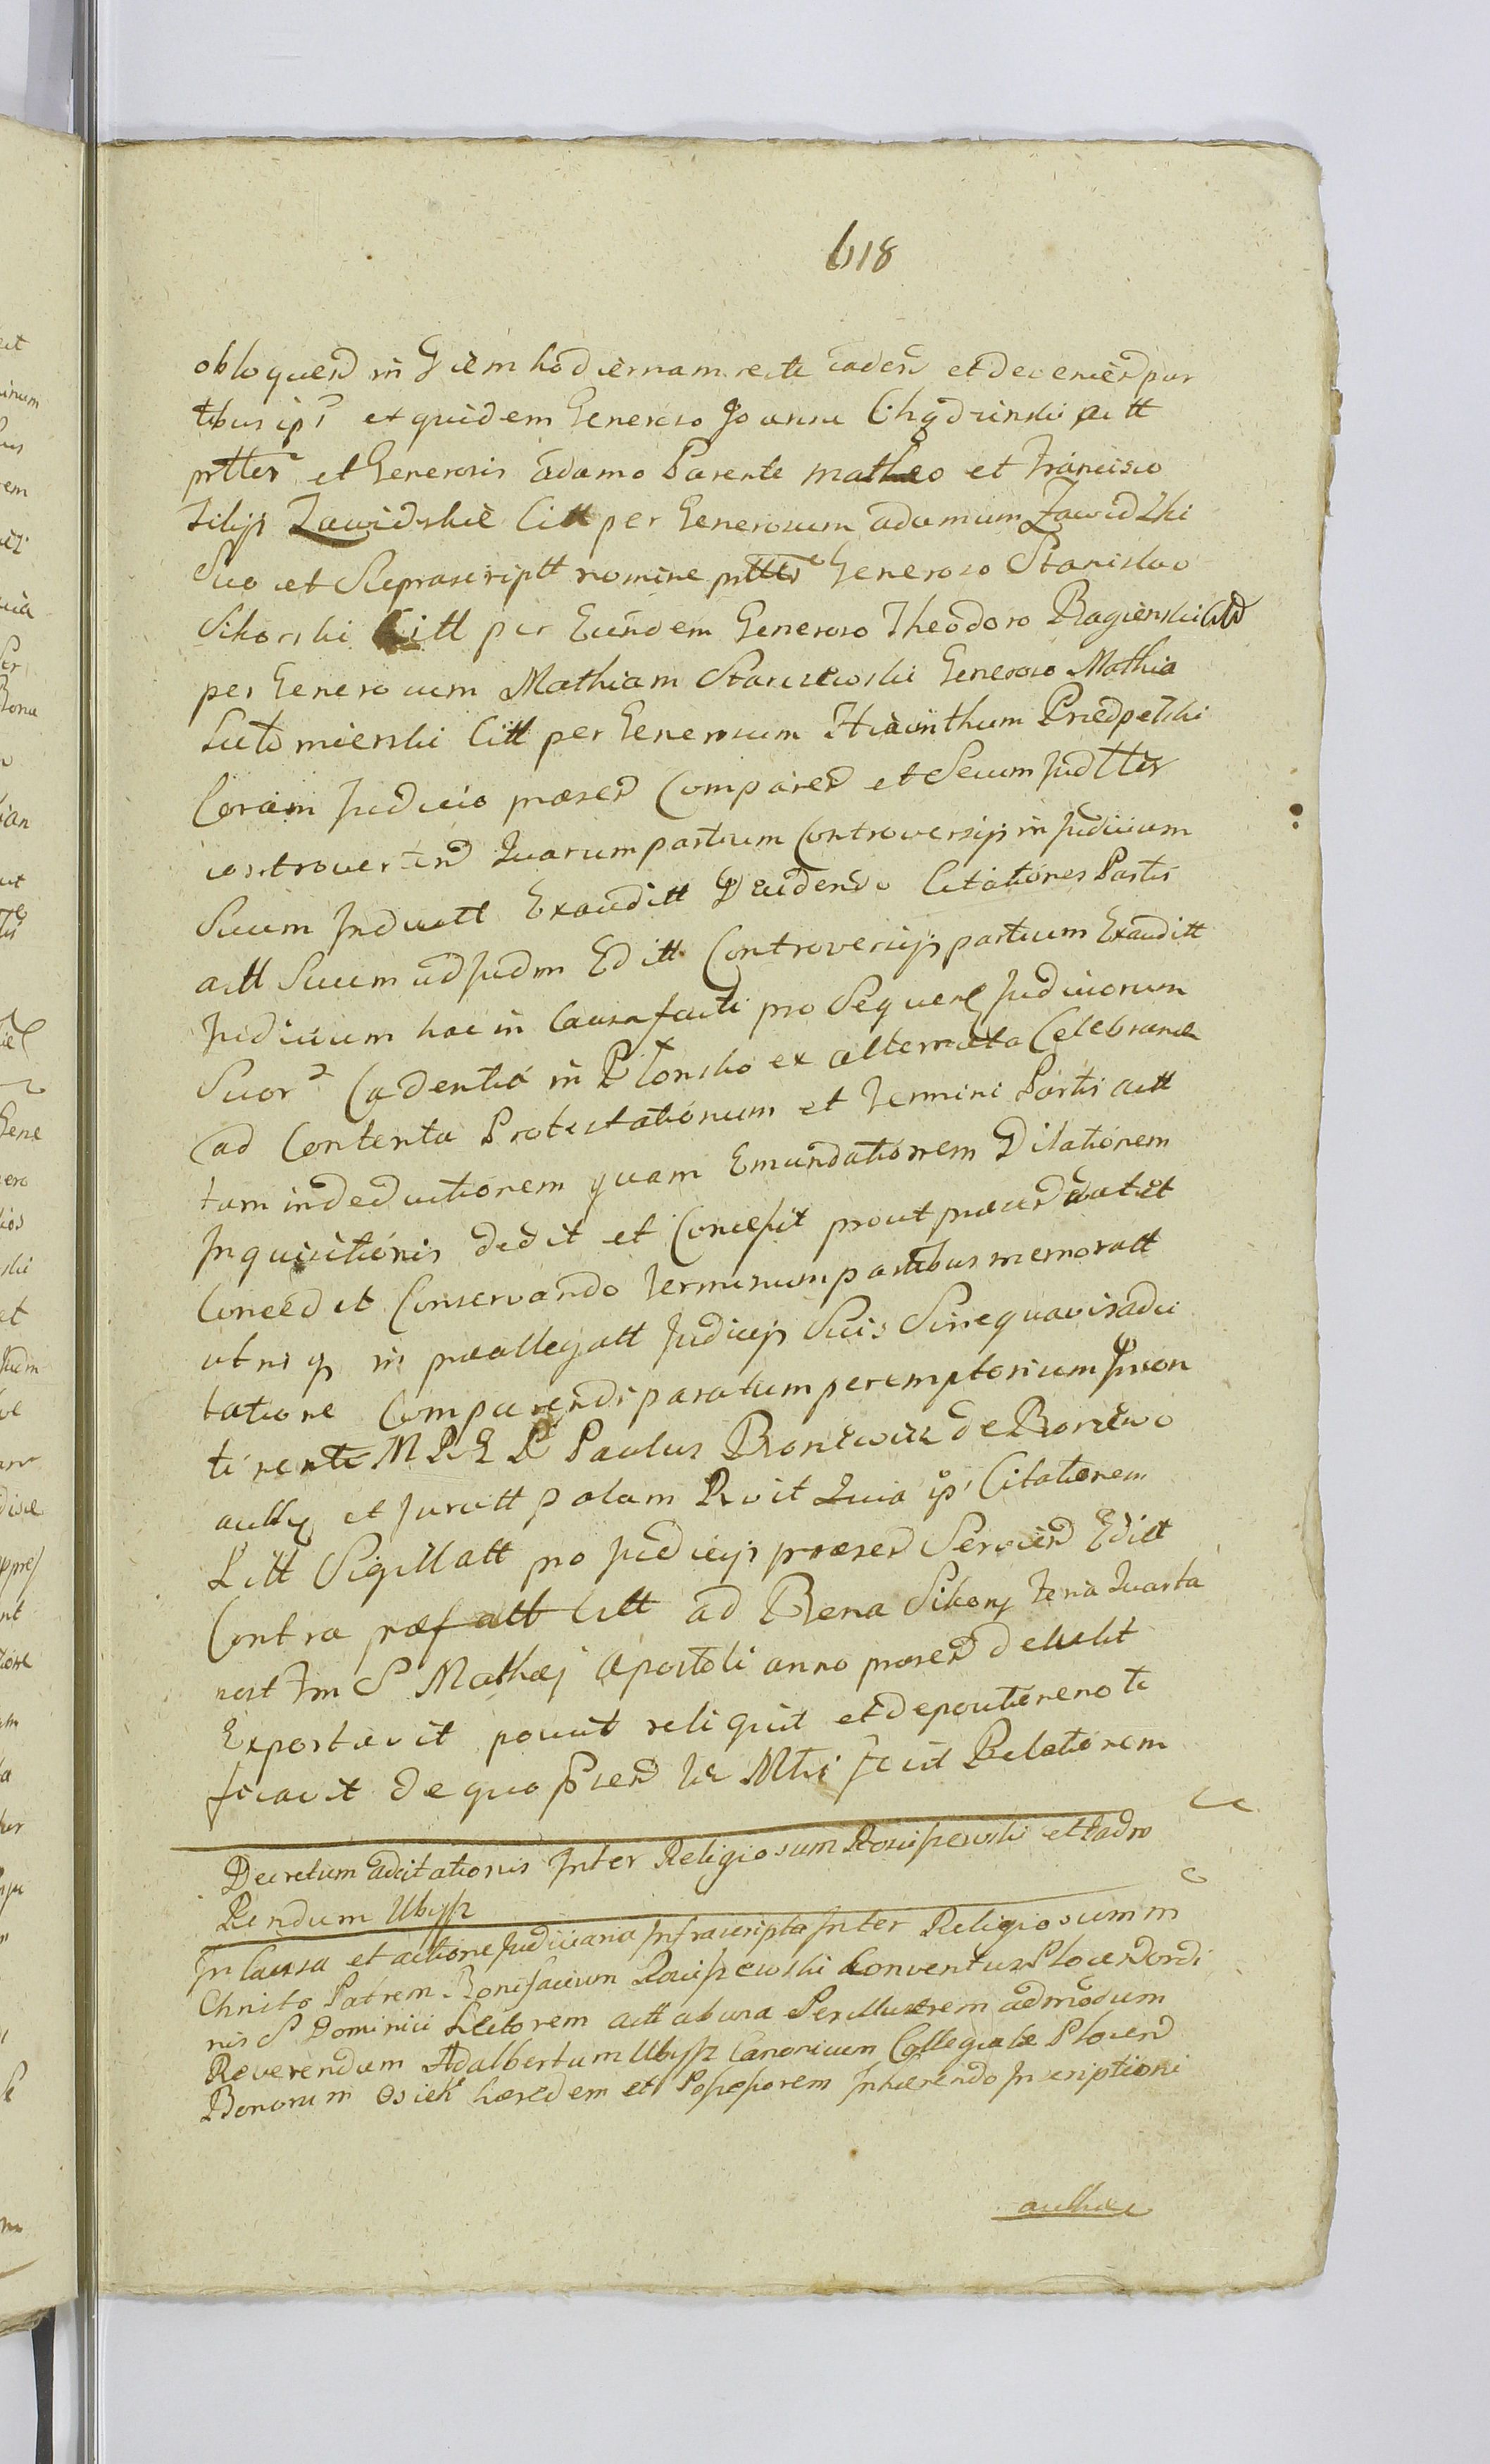 618
obloquend in Diem hodiernam recte caden et decenien par
tibus ips et quidem Generoso Joanne Chądzinski actt
prtter et Generosis adamo Parente matheo et Francisco
Filijs Zawidzkie Citt per Generosum adamum Zawidzki
Suo et Suprascriptt nomine prtter Generoso Stanislao
Sikorski Citt per Eundem Generoso Theodoro Bagienski Citt
per Generosum Mathiam Staniszewski Generoso Mathia
Lutomierski Citt per Generosum Hiacinthum Przedpelski
Coram Judicio præsen Comparen et Secum Judtter
controverten Quarum partium Controversijs in Judicium
Suum Inductt Exauditt Decidendo Citationes Partis
actt Suum ad Judm Editt Controversijs partium Exauditt
Judicium hac in Causa facti pro Sequen Judiciorum
Suor Cadentia in Płonsko ex alternata Celebrand
ad Contenta Protestationum et Termini Partis actt
tam in deductionem quam Emundationem Dilationem
Inquisitionis dedit et Concessit prout præsen dat et
Conced et Conservando Terminum partibus memoratt
utrisq in præallegatt Judicijs Suis Sine quavis adci
tatione Comparendi paratum peremptorium Incon
tinenti M R E P Paulus Boniewicz de Boniewo
authq et Juratt palam R vit Quia ips Citationem
Litt Sigillatt pro Judicijs præsen Servien Editt
Contra præfatt Citt ad Bona Sikorz Feria Quarta
post Fm S Mathæj Apostoli anno præsen detulit
Exportavit posuit reliquit et depositione noti
ficavit de quo præsen hic Mtri fecit Relationem
Decretum adcitationis Inter Religiosum Rosciszewski et ladm
Rendum Ubysz
In Causa et actione Judiciaria Infrascripta Inter Religiosum in
Christo Patrem Bonifacium Rosciszewski Conventus Plocen Ordi
nis S Dominici Lectorem actt ab una Perillustrem admodum
Reverendum Adalbertum Ubysz Canonicum Collegiatæ Plocen
Bonorum Osiek hæredem et Possessorem Inhærendo Inscriptioni
authæ